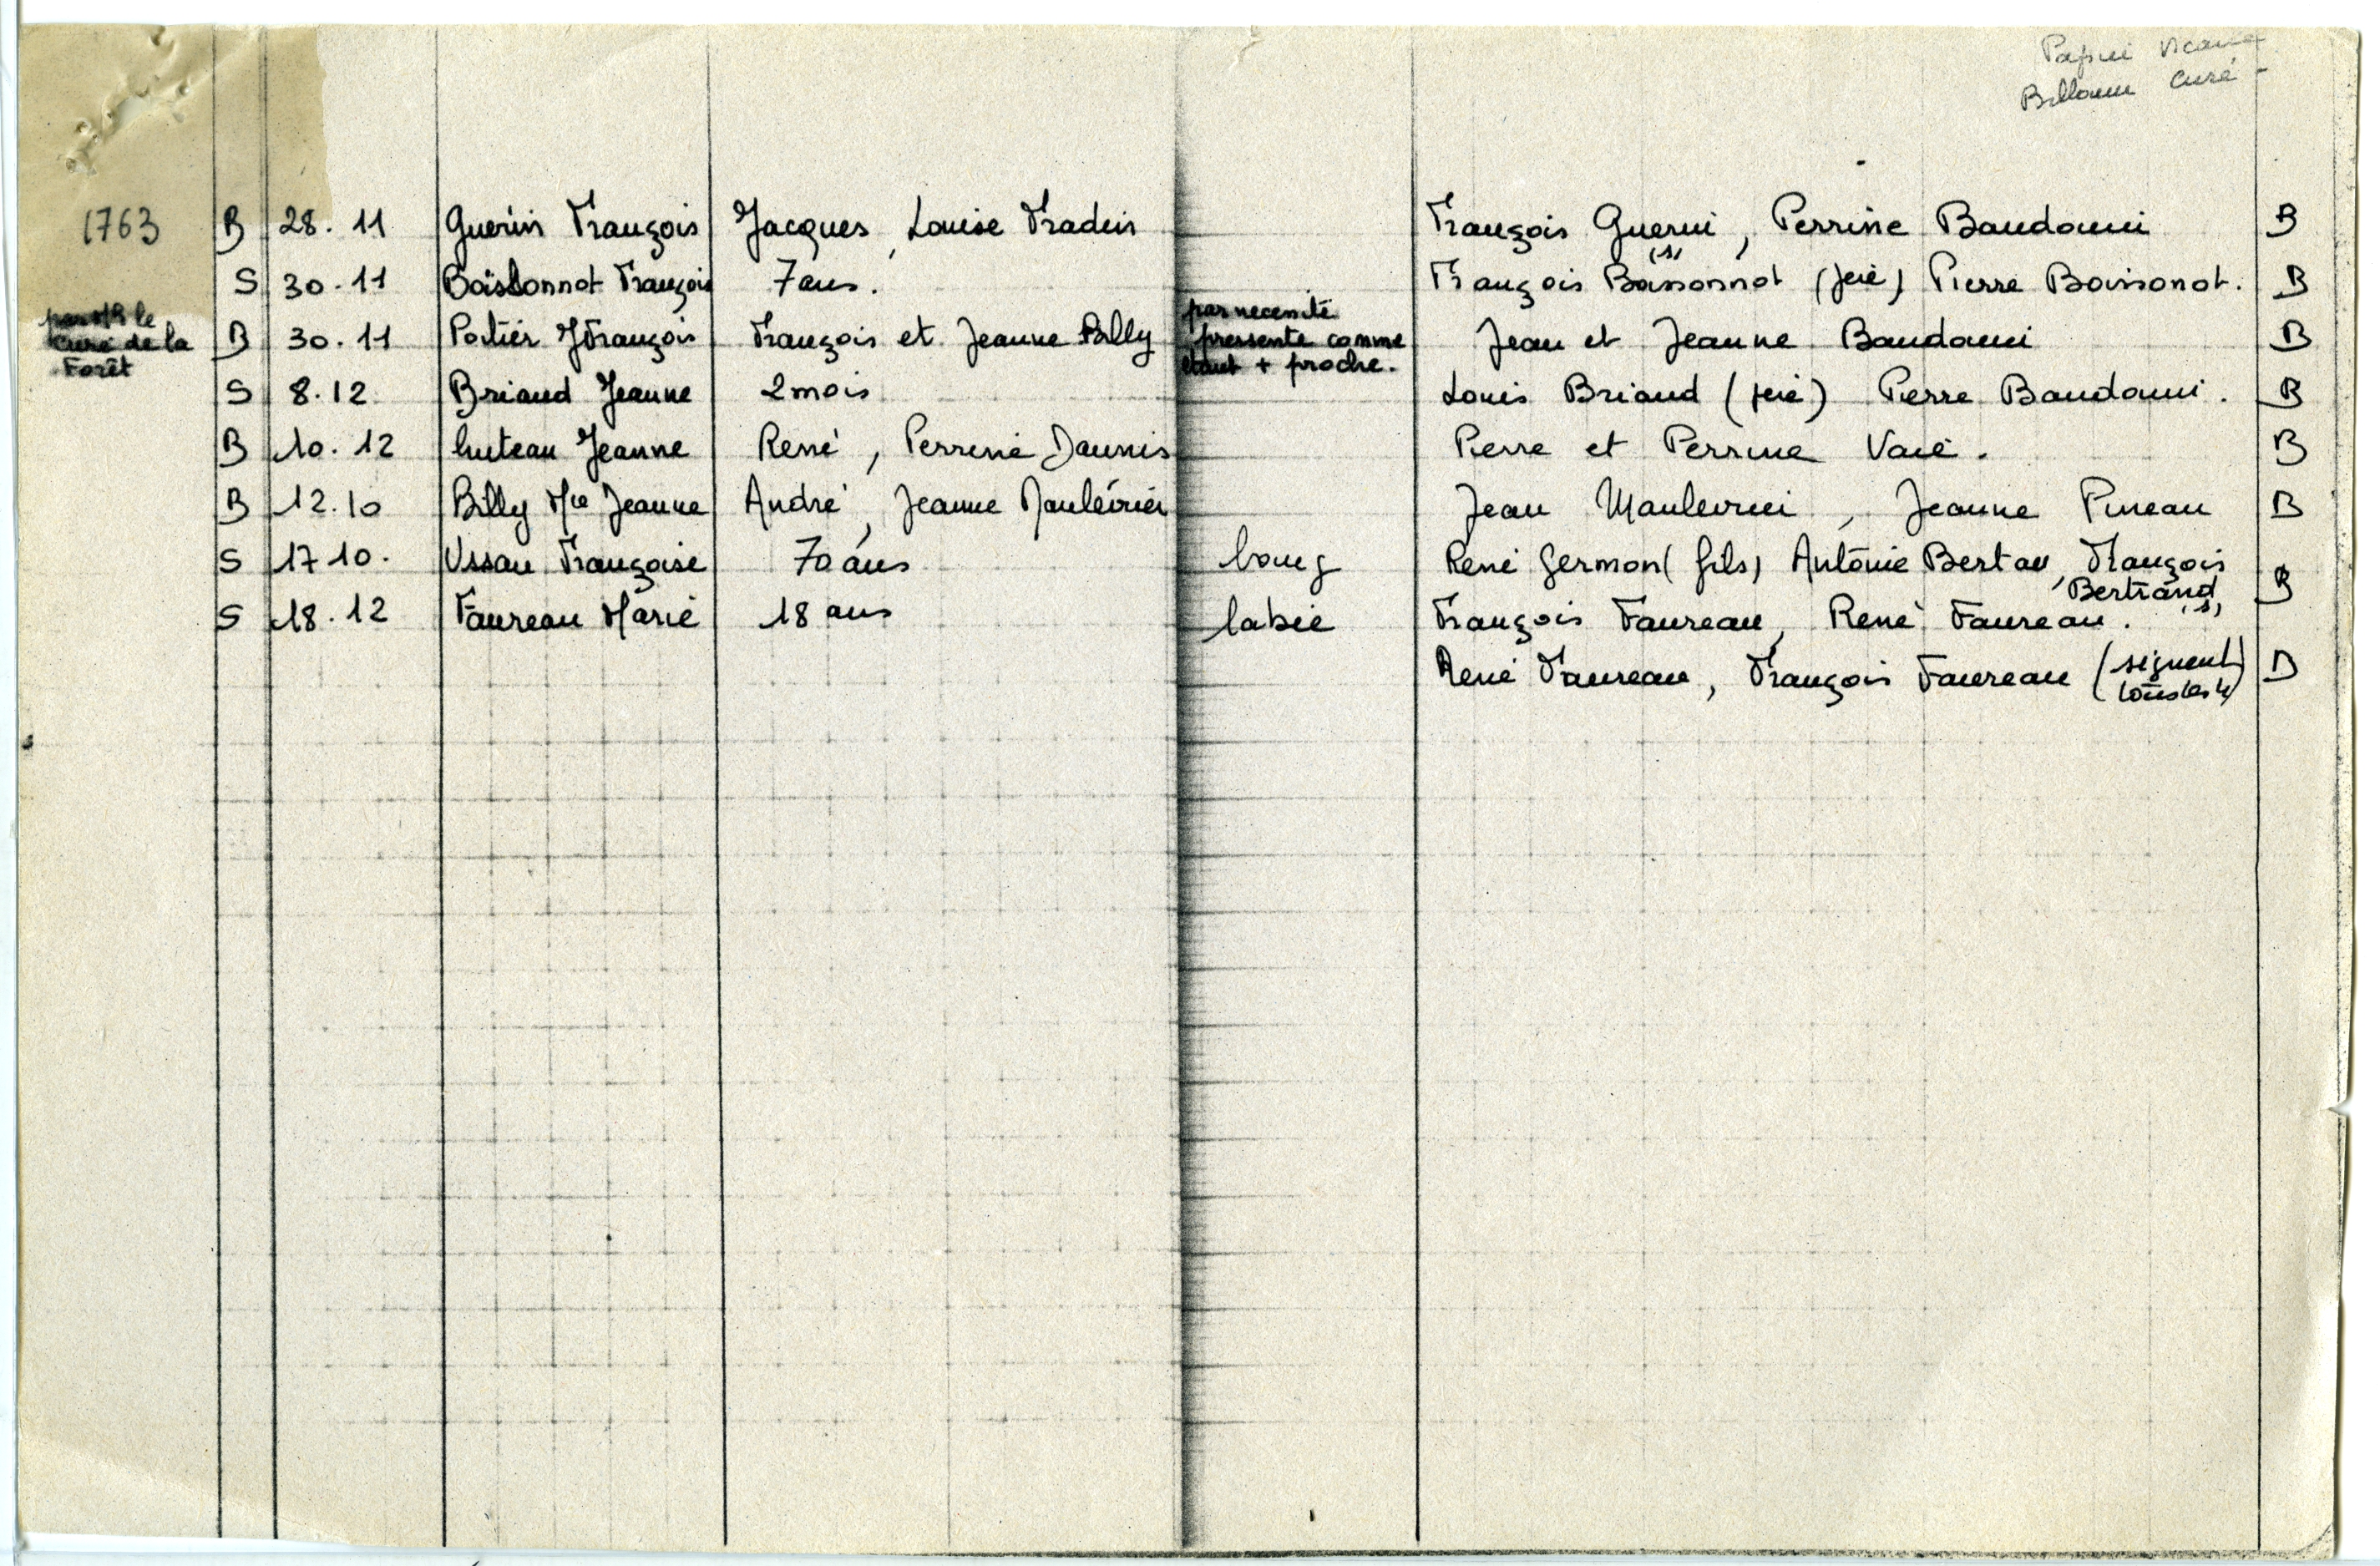 Papin Vicaire
Billouin curé -
1763 B 28.11 Guérin François Jacques, Louise Fradin François Guerin, Perrine Baudouin B
S 30.11 Boissonnot François 7 ans. François Boissonnot (père) Pierre Boissonot. B
(s)
par Mr le
curé de la
Forêt
B 30.11 Potier J François François et Jeanne Billy Jean et Jeanne Baudouin B
par necessité
pressente comme
étant + proche.
S 8.12 Briaud Jeanne 2 mois Louis Briaud (père) Pierre Baudouin. B
B 10.12 huteau Jeanne René, Perrine Daunis Pierre et Perrine B
B 12.10 Billy Mie Jeanne André, Jeanne Maulévrier Jean Maulevrier, Jeanne Pineau B
S 17 10. Ussau Françoise 70 ans bourg René Germon (fils) Antoine Bertau, François
Bertrand B
S 18.12 Faureau Marie 18 ans labie François Faureau, René Faureau. (s)
René Faureau, François Faureau (signent
tous les 4) B